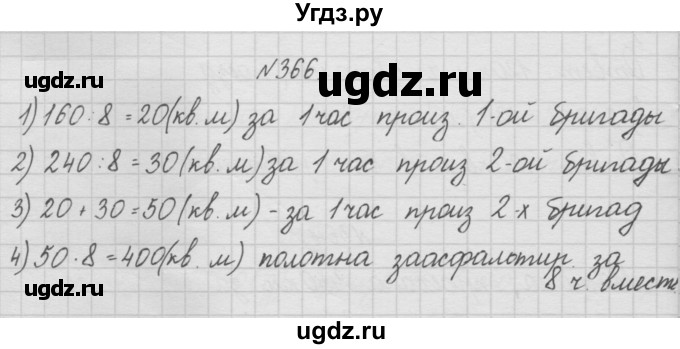 Угдз.ру
№366
1) 160 : 8 = 20 (кв. м) за 1 час произ. 1-ой бригады
2) 240 : 8 = 30 (кв. м) за 1 час произ 2-ой бригады.
3) 20 + 30 = 50 (кв. м) - за 1 час произ 2-х бригад
4) 50 · 8 = 400 (кв. м) полотна заасфальтир. за
8 ч. вместе
ugdz.ru
ugdz.ru
ugdz.ru
ugdz.ru
ugdz.ru
ugdz.ru